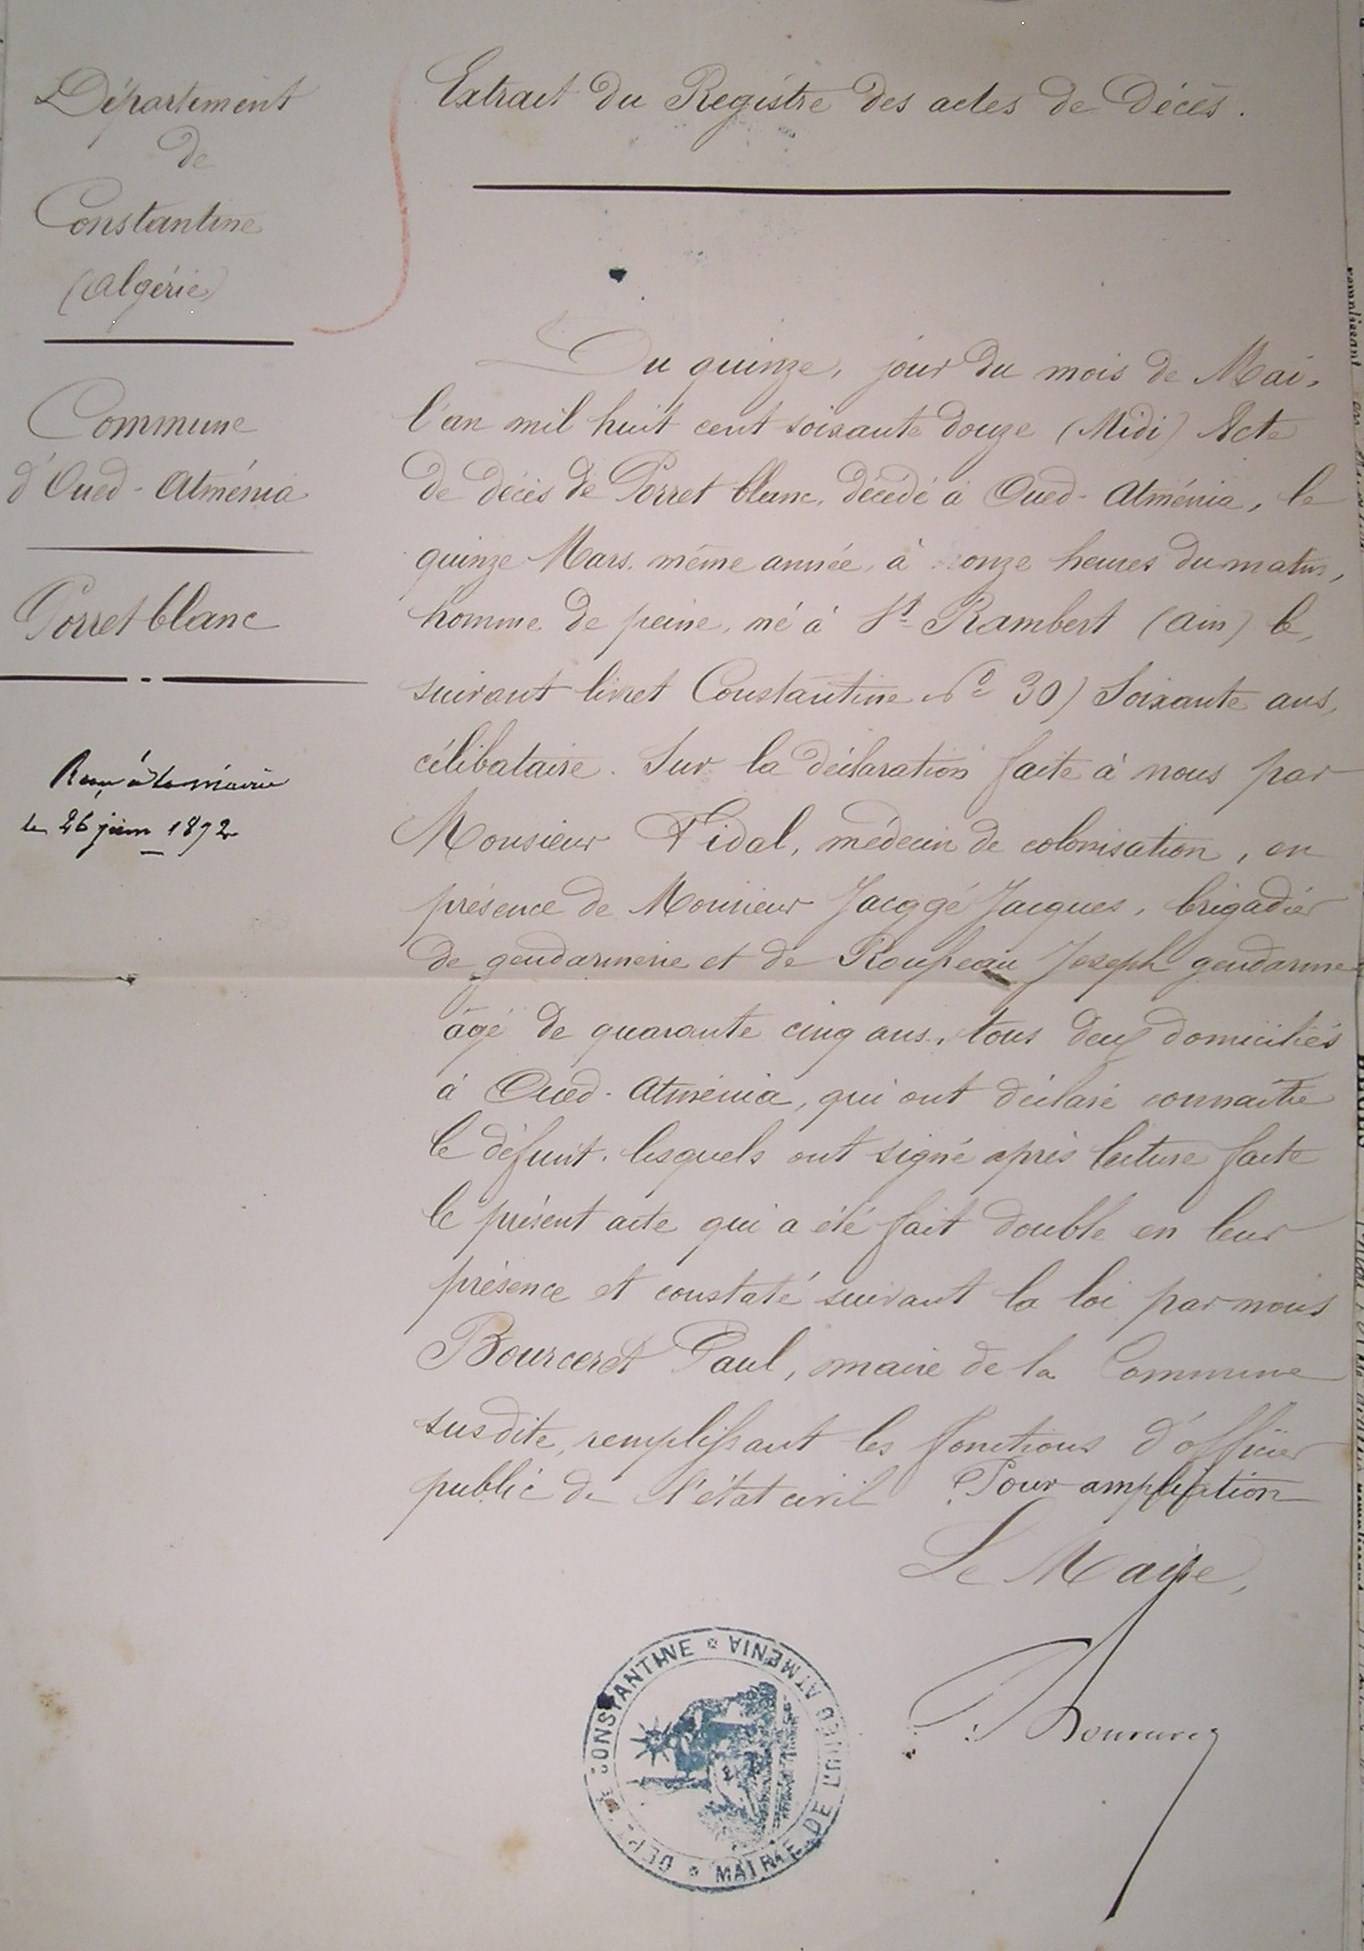 Département
de
Constantine
(Algérie)
Commune
d'Oued-Atménia
Porret blanc
Reçu à la mairie
le 26 juin 1872
Extrait du Registre des actes de Décès.
Du quinze, jour du mois de Mai,
l'an mil huit cent soixante douze (Midi) Acte
de décès de Porret blanc, décédé à Oued-Atménia, le
quinze Mars, même année, à onze heures du matin,
homme de peine, né à St Rambert (Ain) le,
suivant livret Constantine No 30) Soixante ans,
célibataire. Sur la déclaration faite à nous par
Monsieur Vidal, médecin de colonisation, en
présence de Monsieur Jacggé Jacques, brigadier
de gendarmerie et de Joseph gendarme
âgé de quarante cinq ans, tous deux domiciliés
à Oued-Atménia, qui ont déclaré connaître
le défunt, lesquels ont signé après lecture faite
le présent acte qui a été fait double en leur
présence et constaté suivant la loi par nous
Bourceret Paul, maire de la Commune
susdite, remplissant les fonctions d'officier
public de l'état civil Pour ampliation
Le Maire,
DEPT DE CONSTANTINE * MAIRIE DE L'OUED ATMENIA *